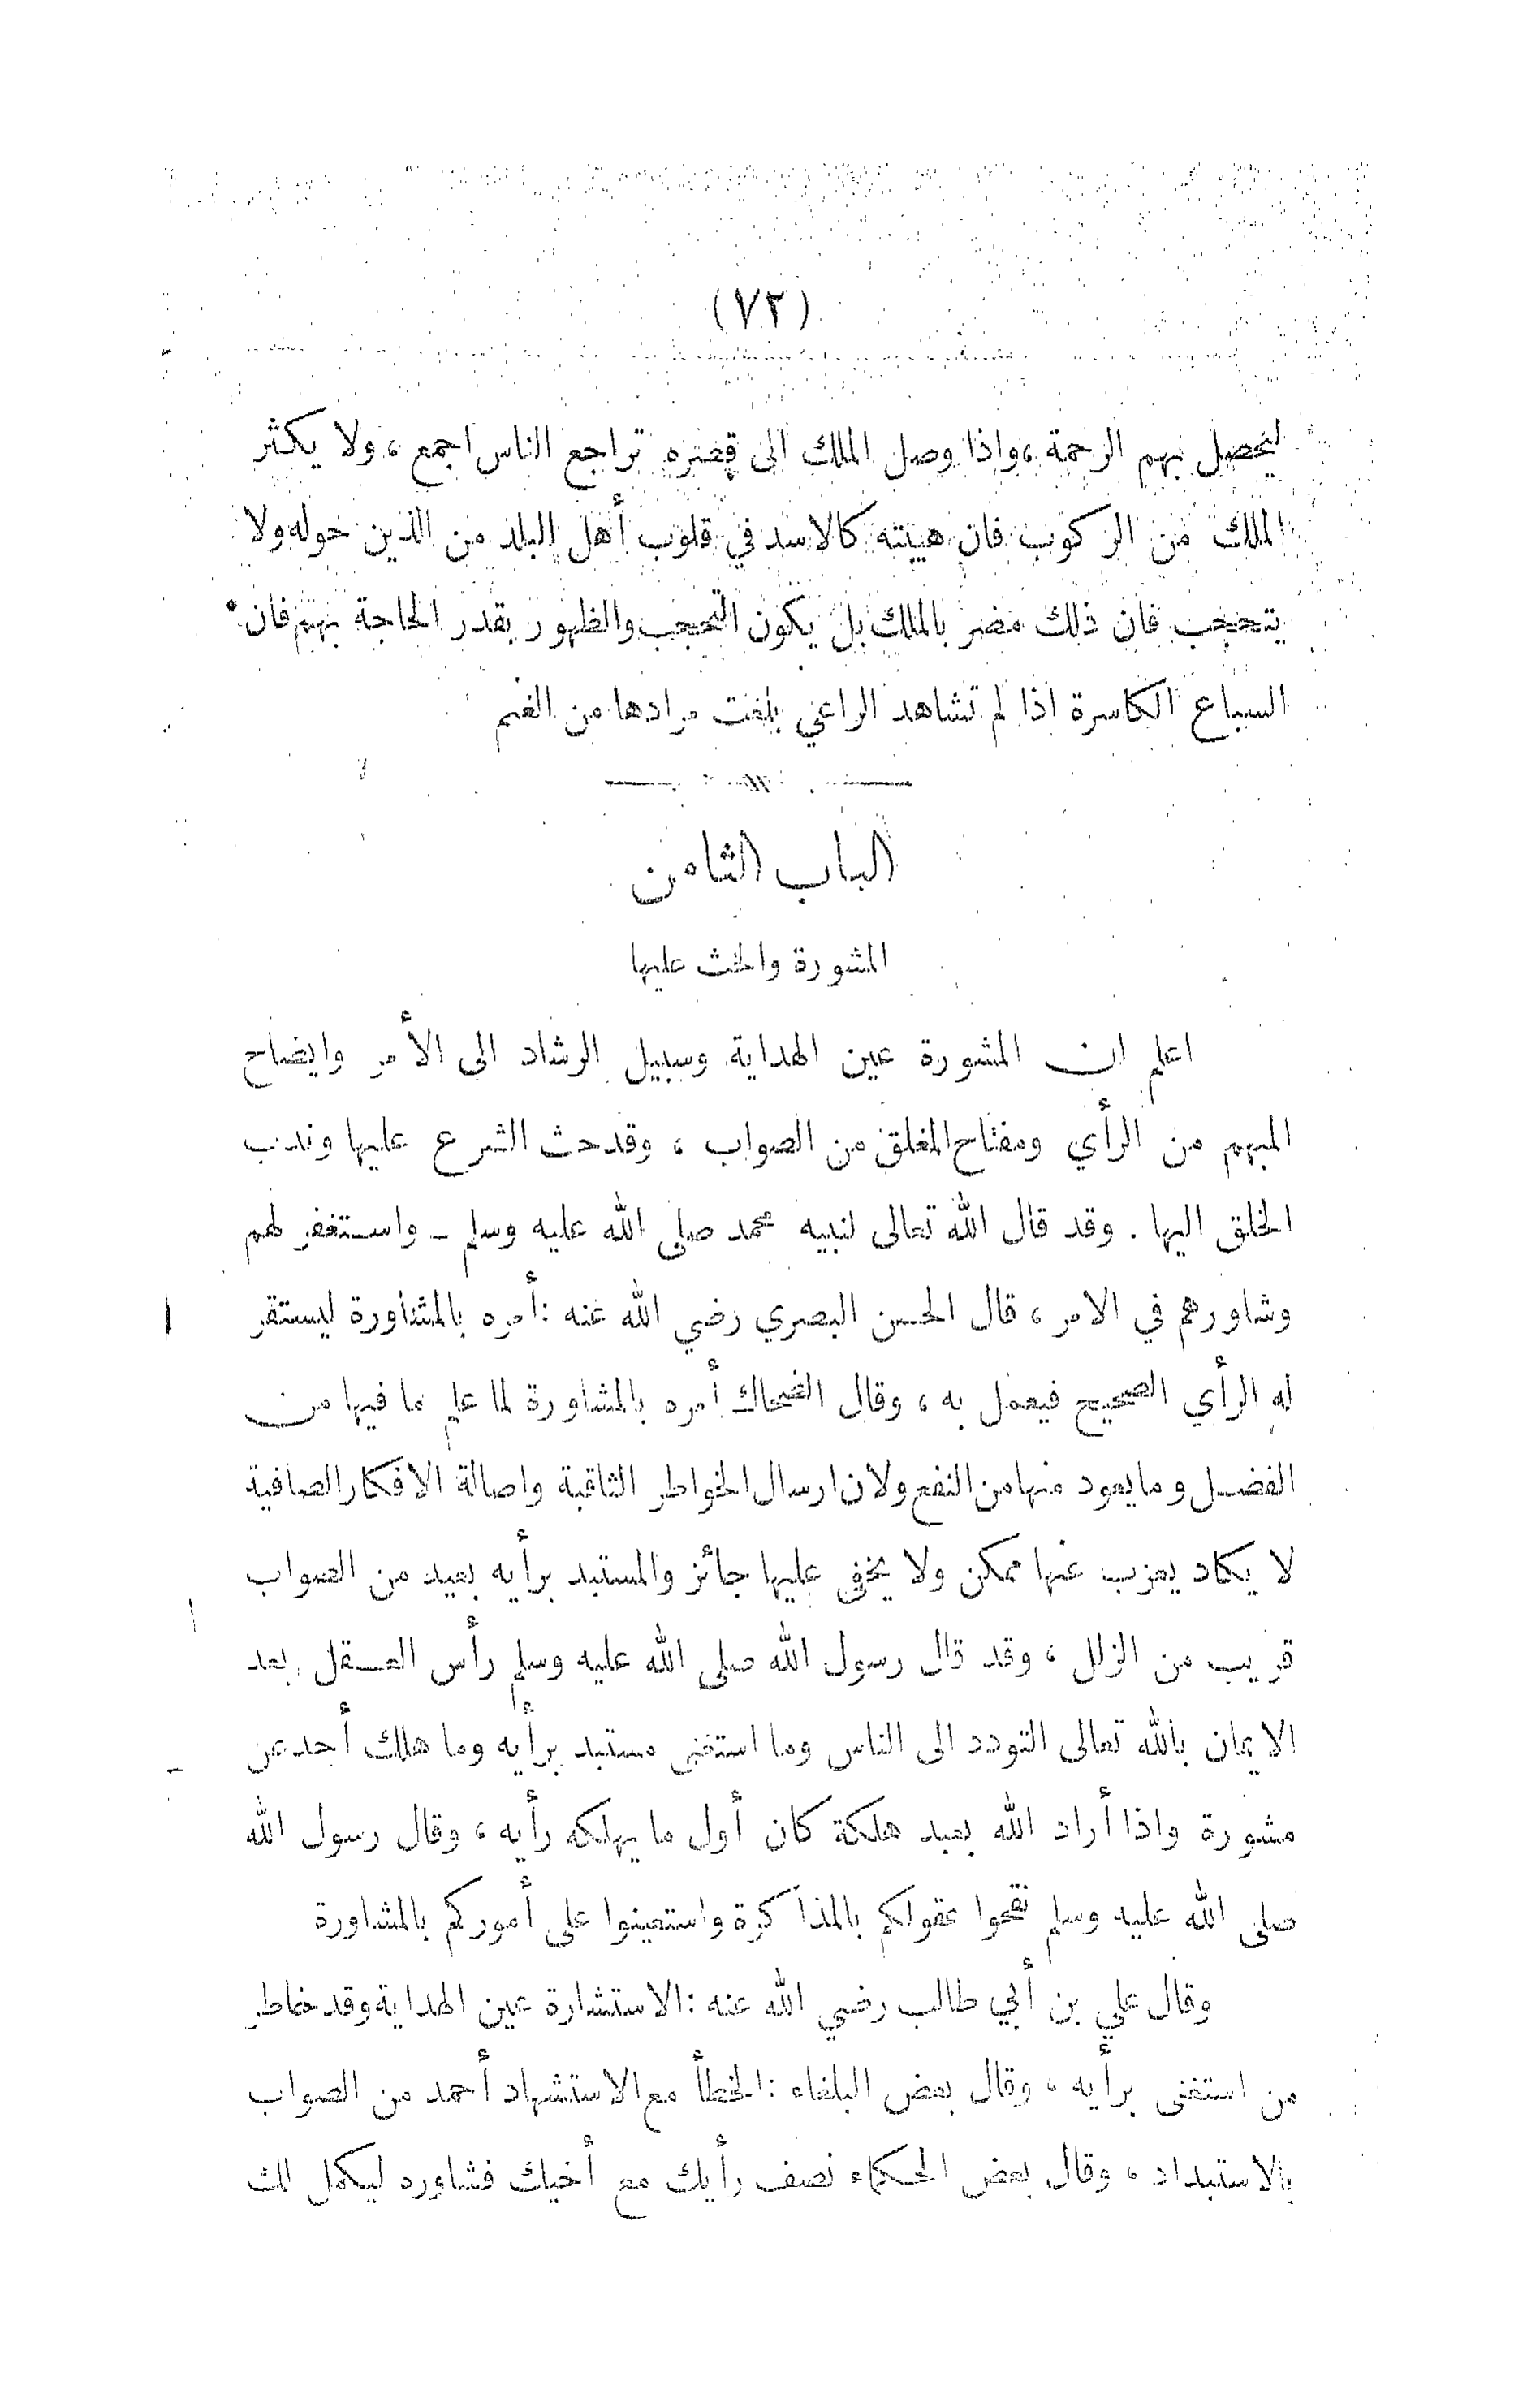 (٧٢)
ليحصل بهم الرحمة ، واذا وصل الملك الى قصره تراجع الناس اجمع ، ولا يكثر
الملك من الركوب فان هيبته كالاسد في قلوب أهل البلد من الذين حوله ولا
يتحجب فان ذلك مضر بالملك بل يكون التحجب والظهور بقدر الحاجة بهم فان
السباع الكاسرة اذا لم تشاهد الراعي بلغت مرادها من الغنم
الباب الثامن
المشورة والحث عليها
اعلم ان المشورة عين الهداية وسبيل الرشاد الى الأمر وايضاح
المبهم من الرأي ومفتاح المغلق من الصواب ، وقد حث الشرع عليها وندب
الخلق اليها . وقد قال الله تعالى لنبيه محمد صلى الله عليه وسلم ـ واستغفر لهم
وشاورهم في الامر ، قال الحسن البصري رضي الله عنه : أمره بالمشاورة ليستقر
له الرأي الصحيح فيعمل به ، وقال الضحاك أمره بالمشاورة لما علم ما فيها من
الفضل وما يعود منها من النفع ولان ارسال الخواطر الثاقبة واصالة الافكار الصافية
لا يكاد يعزب عنها ممكن ولا يخفى عليها جائز والمستبد برأيه بعيد من الصواب
قريب من الزلل ، وقد قال رسول الله صلى الله عليه وسلم رأس العقل بعد
الايمان بالله تعالى التودد الى الناس وما استغنى مستبد برأيه وما هلك أحد عن
مشورة واذا أراد الله بعبد هلكة كان أول ما يهلكه رأيه ، وقال رسول الله
صلى الله عليه وسلم نقحوا عقولكم بالمذاكرة واستعينوا على أموركم بالمشاورة
وقال علي بن أبي طالب رضي الله عنه : الاستشارة عين الهداية وقد خاطر
من استغنى برأيه ، وقال بعض البلغاء : الخطأ مع الاستشهاد أحمد من الصواب
بالاستبداد ، وقال بعض الحكماء نصف رأيك مع أخيك فشاوره ليكمل لك